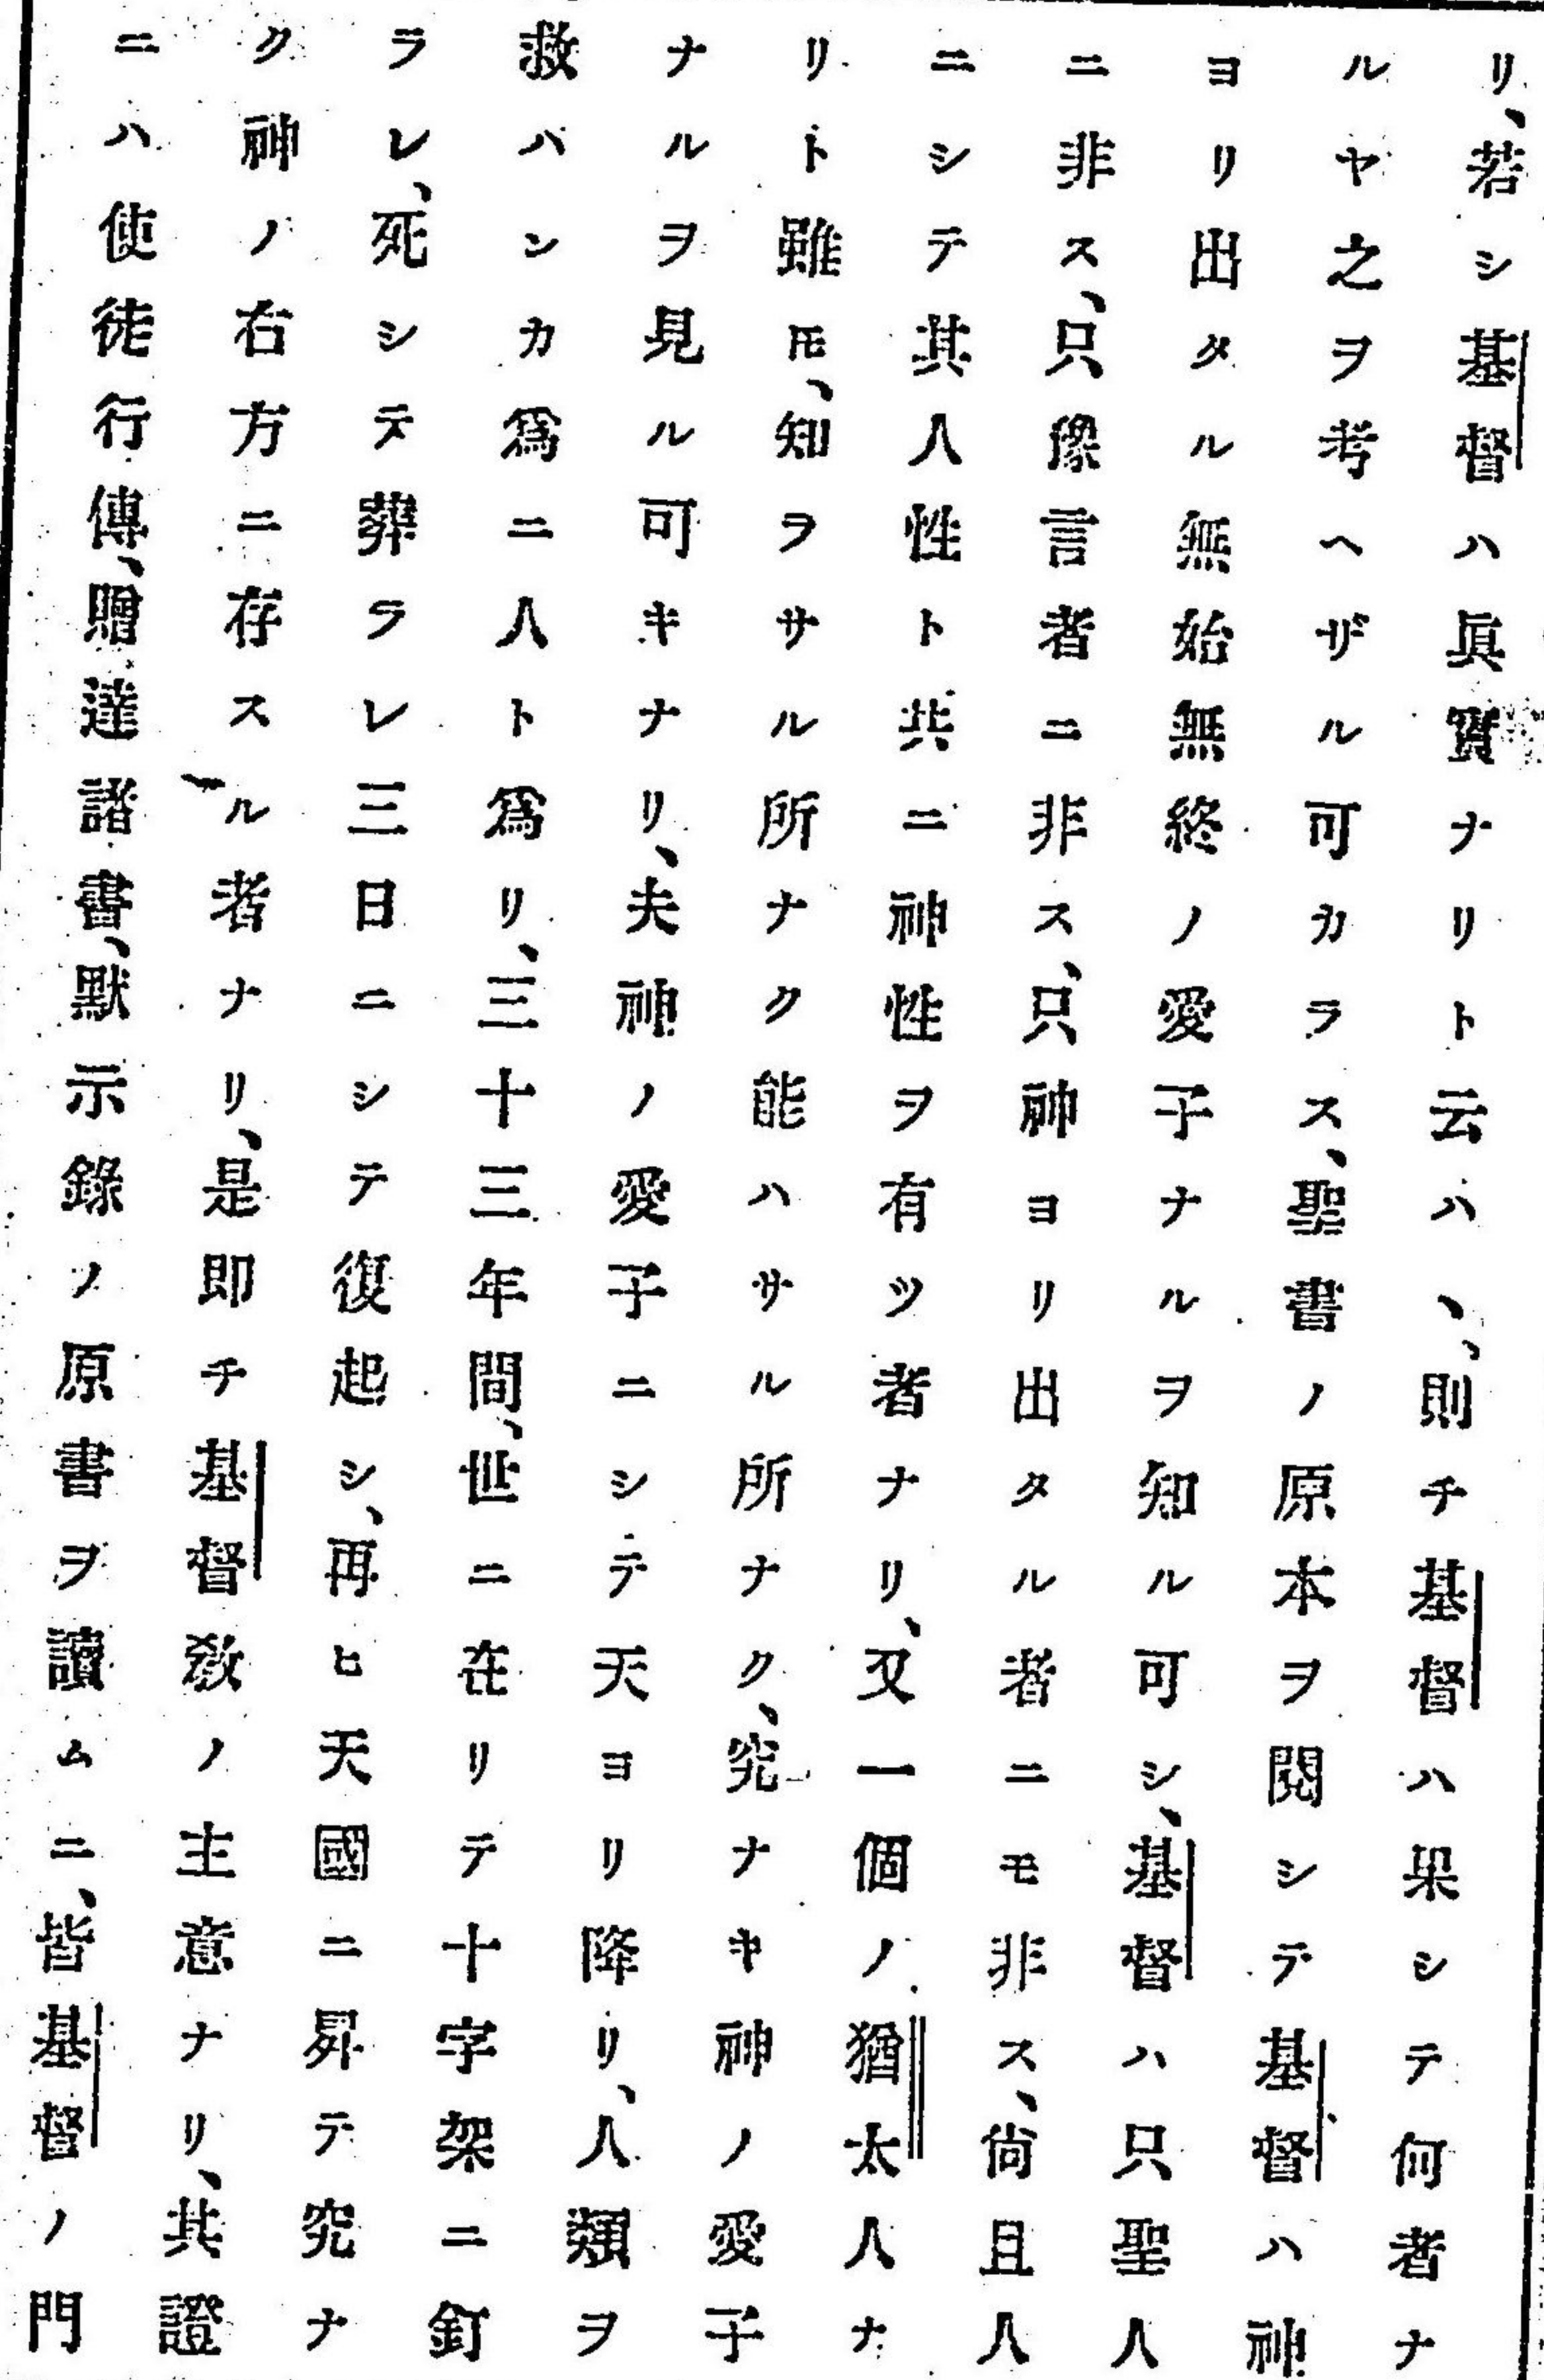 リ、若シ基督ハ眞實ナリト云ハヽ、則チ基督ハ果シテ何者ナ
ルヤ之ヲ考ヘザル可カラス、聖書ノ原本ヲ閲シテ基督ハ神
ヨリ出タル無始無終ノ愛子ナルヲ知ル可シ、基督ハ只聖人
ニ非ス、只豫言者ニ非ス、只神ヨリ出タル者ニモ非ス、尙且人
ニシテ其人性ト共ニ神性ヲ有ツ者ナリ、又一個ノ猶太人ナ
リト雖モ、知ラサル所ナク能ハサル所ナク、究ナキ神ノ愛子
ナルヲ見ル可キナリ、夫神ノ愛子ニシテ天ヨリ降リ、人類ヲ
救バンカ爲ニ人ト爲リ、三十三年間、世ニ在リテ十字架ニ釘
ラレ、死シテ葬ラレ三日ニシテ復起シ、再ヒ天國ニ昇テ究ナ
ク神ノ右方ニ存スル者ナリ、是即チ基督敎ノ主意ナリ、其證
ニハ使徒行傳、贈達諸書、默示錄ノ原書ヲ讀ムニ、皆基督ノ門